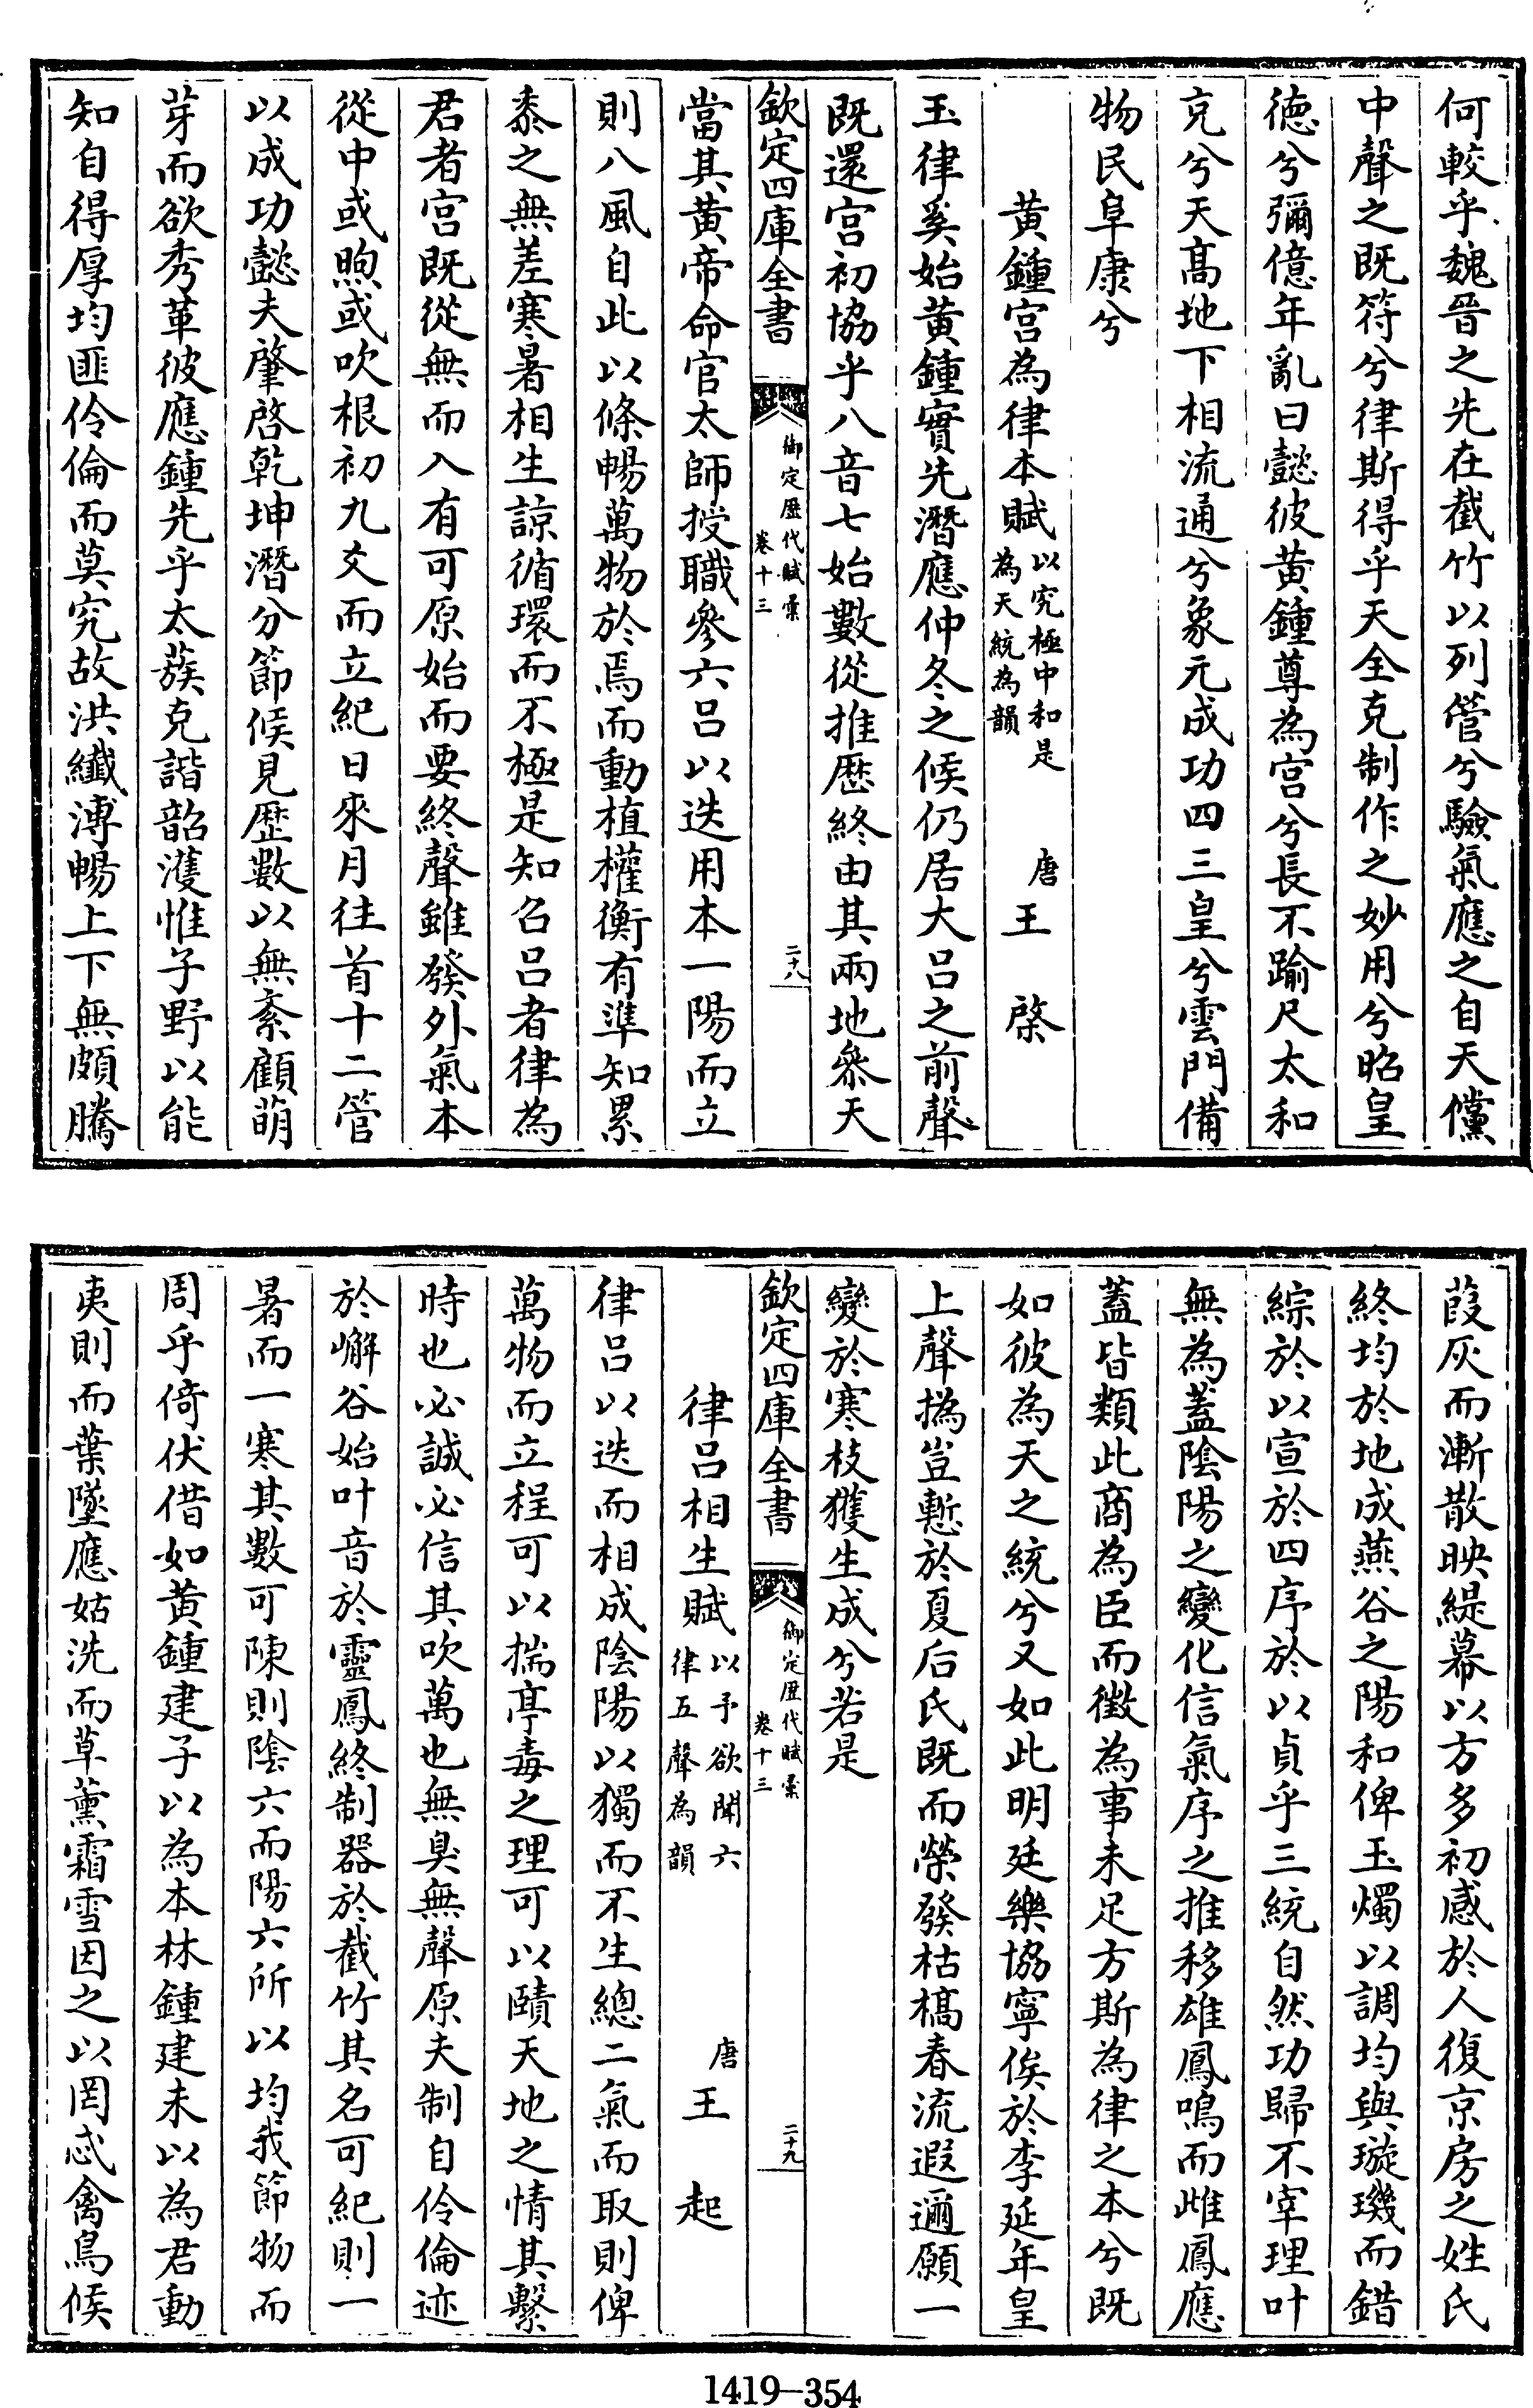 何較乎魏晉之先在截竹以列管兮驗氣應之自天儻
中聲之既符兮律斯得乎天全克制作之妙用兮昭皇
徳兮彌億年亂曰懿彼黄鍾尊為宫兮長不踰尺太和
克兮天髙地下相流通兮象元成功四三皇兮雲門備
物民阜康兮
黄鍾宫為律本賦以究極中和是為天統為韻 唐王棨
玉律奚始黄鍾實先潛應仲冬之候仍居大吕之前聲
既還宫初協乎八音七始數從推厯終由其兩地叅天
欽定四庫全書 御定歴代賦彚 卷十三 二十八
當其黄帝命官太師授職參六吕以迭用本一陽而立
則八風自此以條暢萬物於焉而動植權衡有準知累
黍之無差寒暑相生諒循環而不極是知召吕者律為
君者宫既從無而入有可原始而要終聲雖發外氣本
從中或煦或吹根初九爻而立紀日來月往首十二管
以成功懿夫肇啓乾坤潛分節候見歴數以無紊顧萌
芽而欲秀革彼應鍾先乎太蔟克諧韶濩惟子野以能
知自得厚均匪伶倫而莫究故洪纖溥暢上下無頗騰
葭灰而漸散映緹幕以方多初感於人復京房之姓氏
終均於地成燕谷之陽和俾玉燭以調均與璇璣而錯
綜於以宣於四序於以貞乎三統自然功歸不宰理叶
無為葢陰陽之變化信氣序之推移雄鳳鳴而雌鳳應
葢皆類此商為臣而徴為事未足方斯為律之本兮既
如彼為天之統兮又如此明廷樂協寧俟於李延年皇
上聲撝豈慙於夏后氏既而榮發枯槁春流遐邇願一
變於寒枝獲生成兮若是
欽定四庫全書 御定歴代賦彚 卷十三 二十九
律吕相生賦以予欲聞六律五聲為韻 唐王起
律吕以迭而相成陰陽以獨而不生總二氣而取則俾
萬物而立程可以揣亭毒之理可以賾天地之情其繫
時也必誠必信其吹萬也無臭無聲原夫制自伶倫迹
於嶰谷始叶音於靈鳳終制器於截竹其名可紀則一
暑而一寒其數可陳則陰六而陽六所以均我節物而
周乎倚伏借如黄鍾建子以為本林鍾建未以為君動
夷則而葉墜應姑洗而草薰霜雪因之以罔忒禽鳥候
1419-354